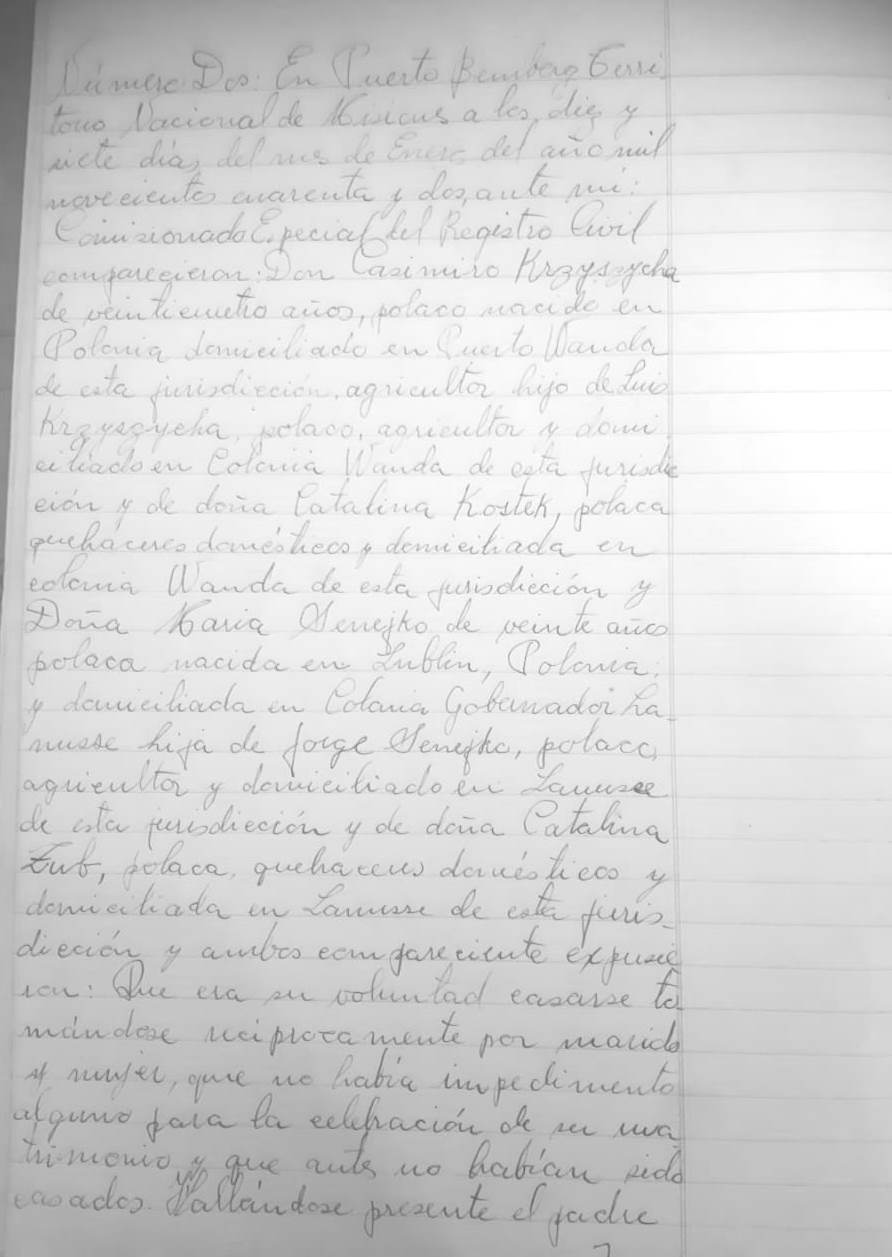 Número Dos: En Puerto Bemberg Terri
torio Nacional de Misiones a los diez y
siete días del mes de Enero del año mil
novecientos cuarenta y dos, ante mi:
Comisionado Especial del Registro Civil
comparecieron: Don Casimiro Krzyszycha
de veinticuatro años, polaco nacido en
Polonia domiciliado en Puerto Wanda
de esta jurisdicción, agricultor hijo de Luis
Krzyszycha, polaco, agricultor y domi
ciliado en Colonia Wanda de esta jurisdic
ción y de doña Catalina Kostek, polaca
quehaceres domésticos y domiciliada en
colonia Wanda de esta jurisdicción y
Doña Maria Senejko de veinte años
polaca nacida en Lublin, Polonia,
y domiciliada en Colonia Gobernador La
nusse hija de Jorge Senejko, polaco,
agricultor y domiciliado en Lanusse
de esta jurisdicción y de doña Catalina
Zub, polaca, quehaceres domésticos y
domiciliada en Lanusse de esta juris-
dicción y ambos compareciente expusie
ron: Que era su voluntad casarse to
mándose reciprocamente por marido
y mujer, que no había impedimento
alguno para la celebración de su ma
trimonio y que antes no habían sido
casados. Hallándose presente el padre